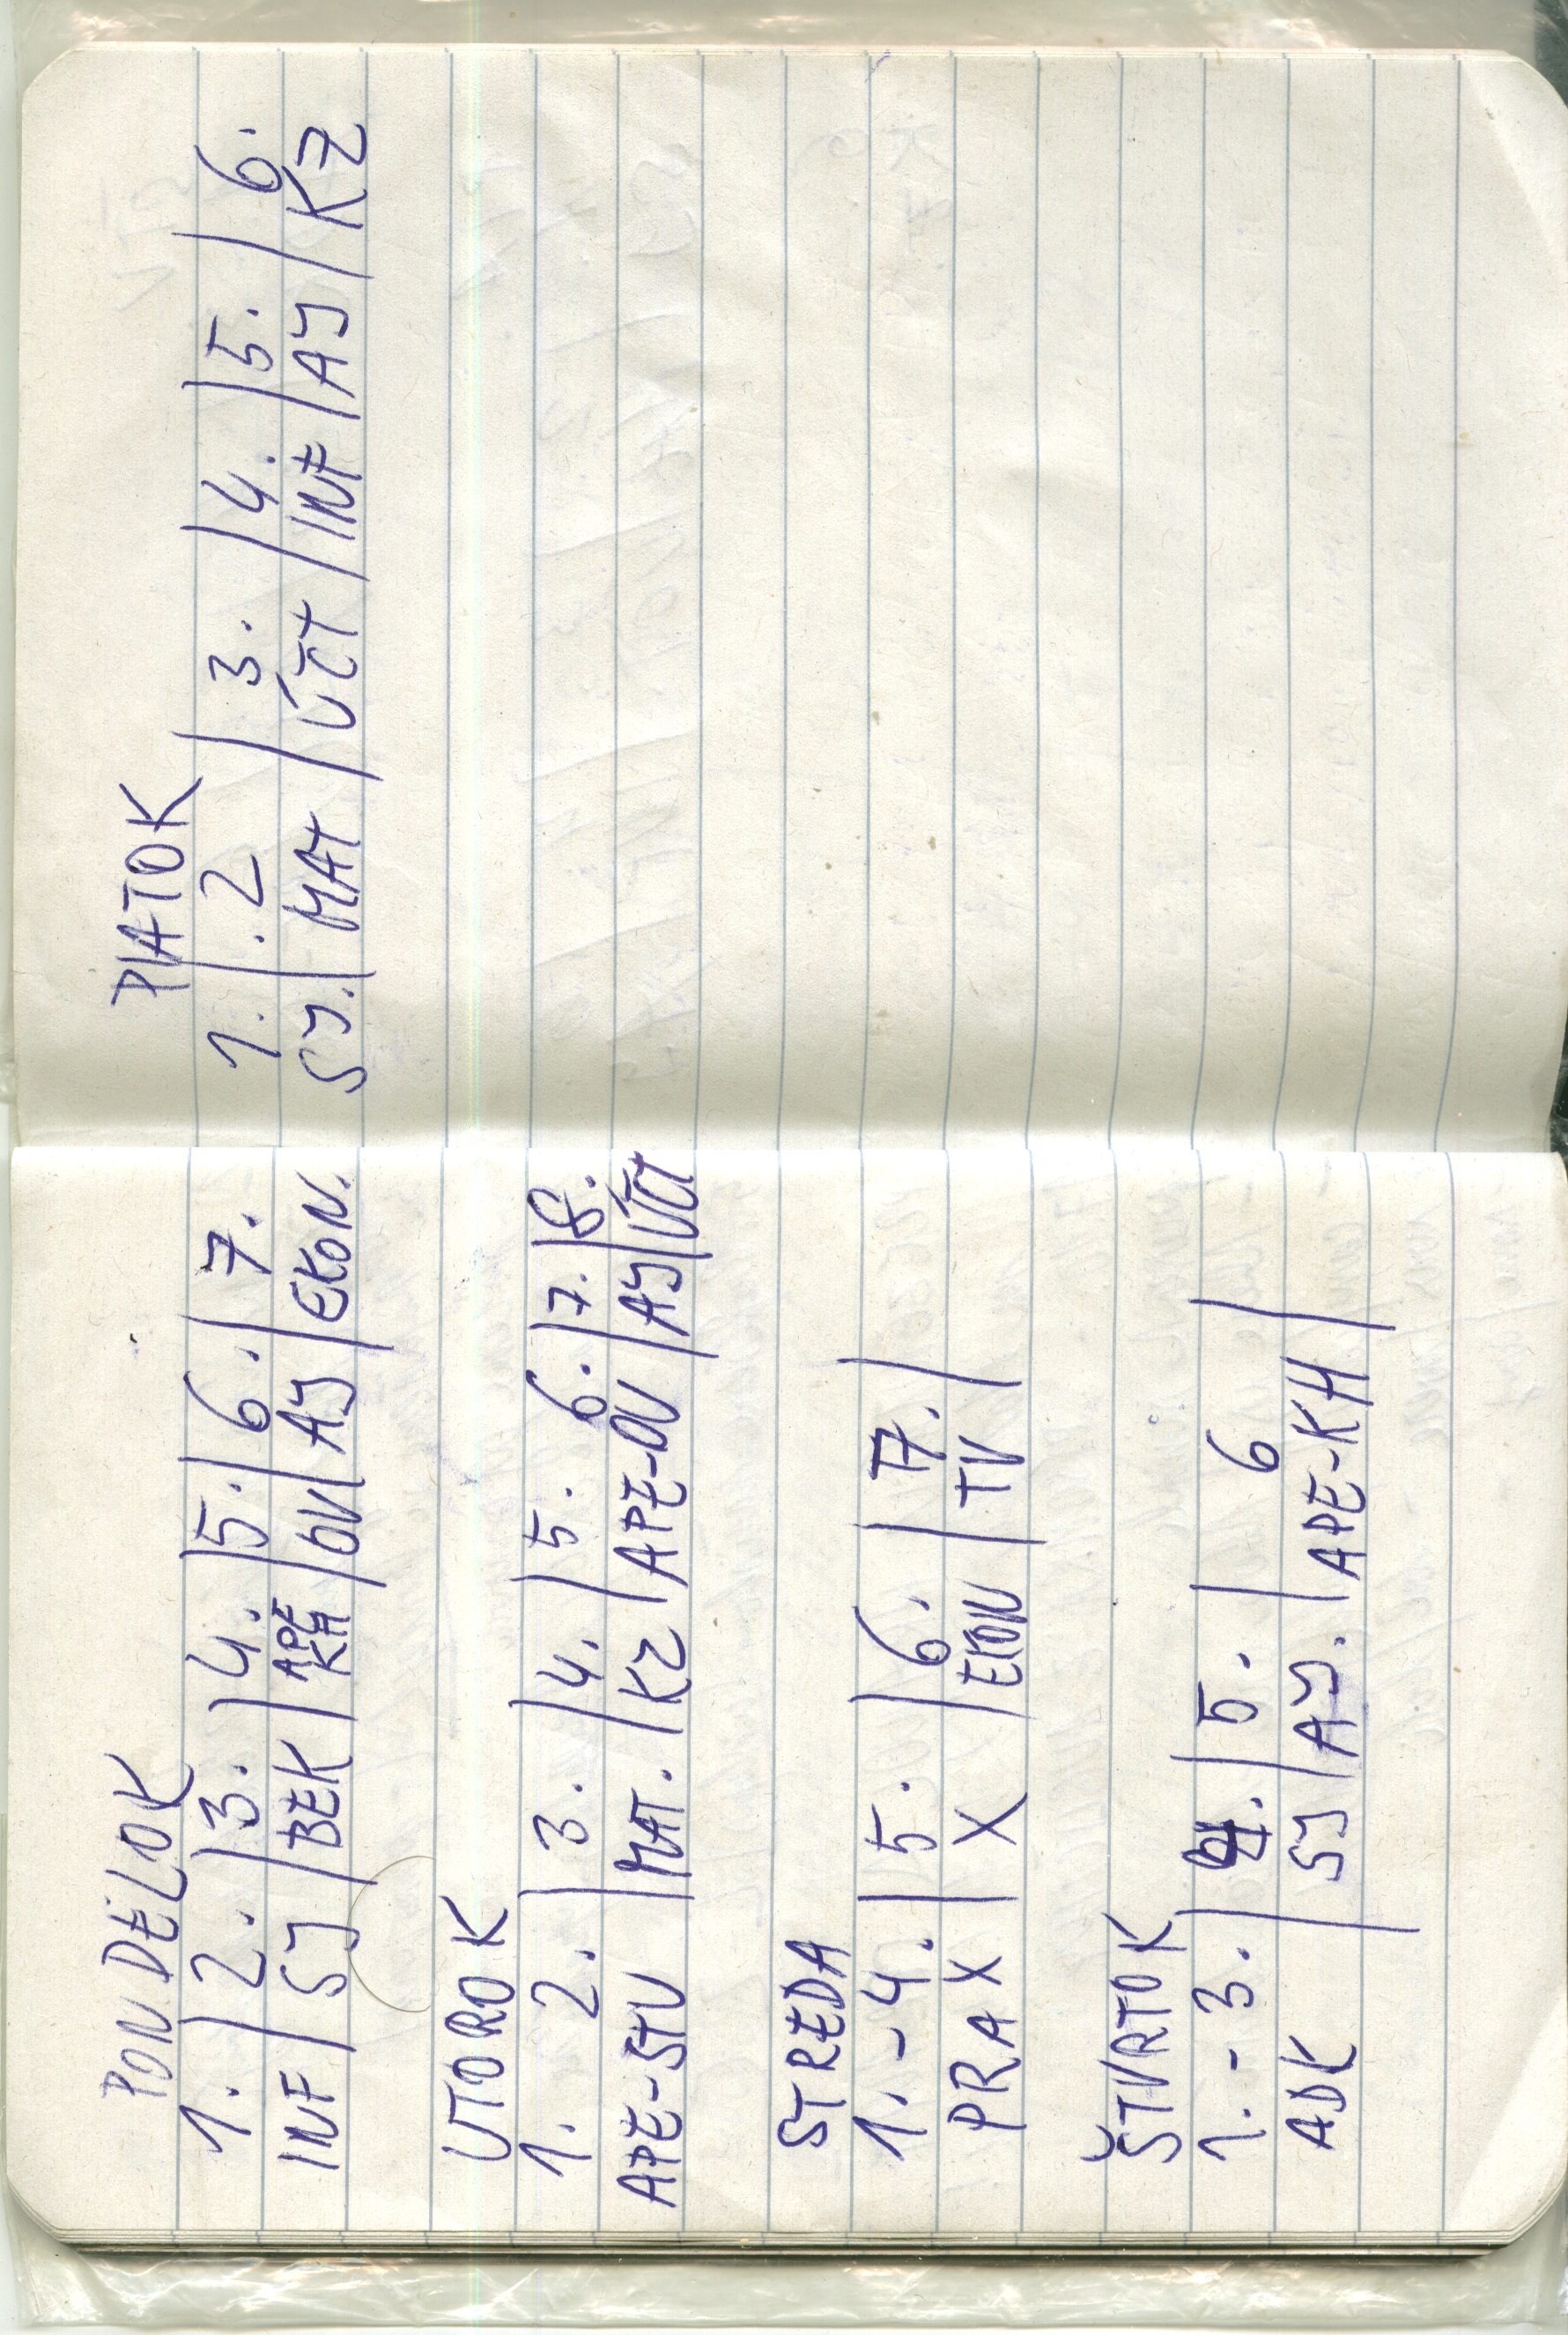 PONDELOK
1. / 2. / 3. / 4. / 5. / 6. / 7.
INF / SJ / BEK / APE KH / OV / AJ / EKON.
UTOROK
1. 2. / 3. / 4. / 5. 6. / 7. / 8.
APE-STU / MAT. / KZ / APE-OU / AJ / ÚČT
STREDA
1. - 4. / 5. / 6. / 7. /
PRAX / X / EKON / TV /
ŠTVRTOK
1. - 3. / 4. / 5. / 6
ADK / SJ / AJ. / APE-KH /
PIATOK
1. / . 2 / 3. / 4. / 5. / 6.
SJ. / MAT / ÚČT / INF / AJ / KZ